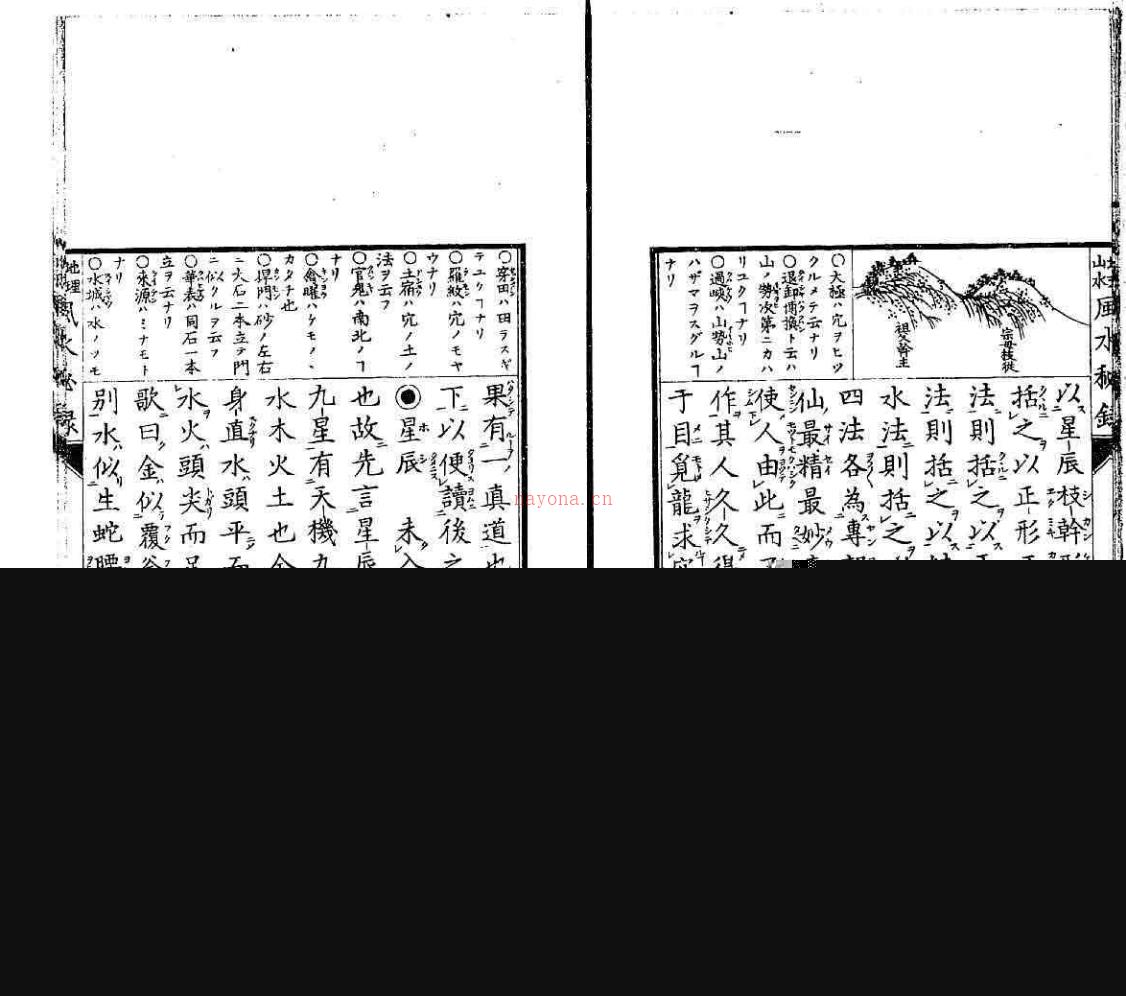 山水風水秘録
祖父幹主
宗母枝従
○大極ハ穴ヲヒツ
クルメテ云ナリ
○退卸傳換ト云ハ
山ノ勢次第ニカハ
リユクヿナリ
○過峽ハ山勢山ノ
ハザマヲスグルヿ
ナリ
以星辰枝幹
括之以正形
法則括之以
法則括之以
水法則括之
四法各為專
仙最精最妙
使人由此而
作其人久久得
于目覓龍求
○穿田ハ田ヲスギ
テユクヿナリ
○羅紋ハ穴ノモヤ
ウナリ
○土宿ハ穴ノ土ノ
法ヲ云フ
○官鬼ハ南北ノヿ
ナリ
○禽曜ハケモノヽ
カタチ也
○捍門ハ砂ノ左右
ニ大石二本立テ門
ニ似タルヲ云フ
○華表ハ同石一本
立ヲ云ナリ
○來源ハミナモト
ナリ
○水城ハ水ノツモ
果有一真道也
下以便讀後之
◉星辰 未入
也故先言星辰
九星有天機九
水木火土也金
身直水頭平而
水火頭尖而足
歌曰金似覆釜
別水似生蛇腰
地理風水秘録
nayona.cn